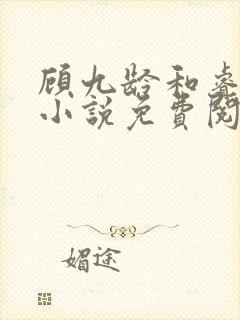 顾九龄和睿
小说免费阅
媚途